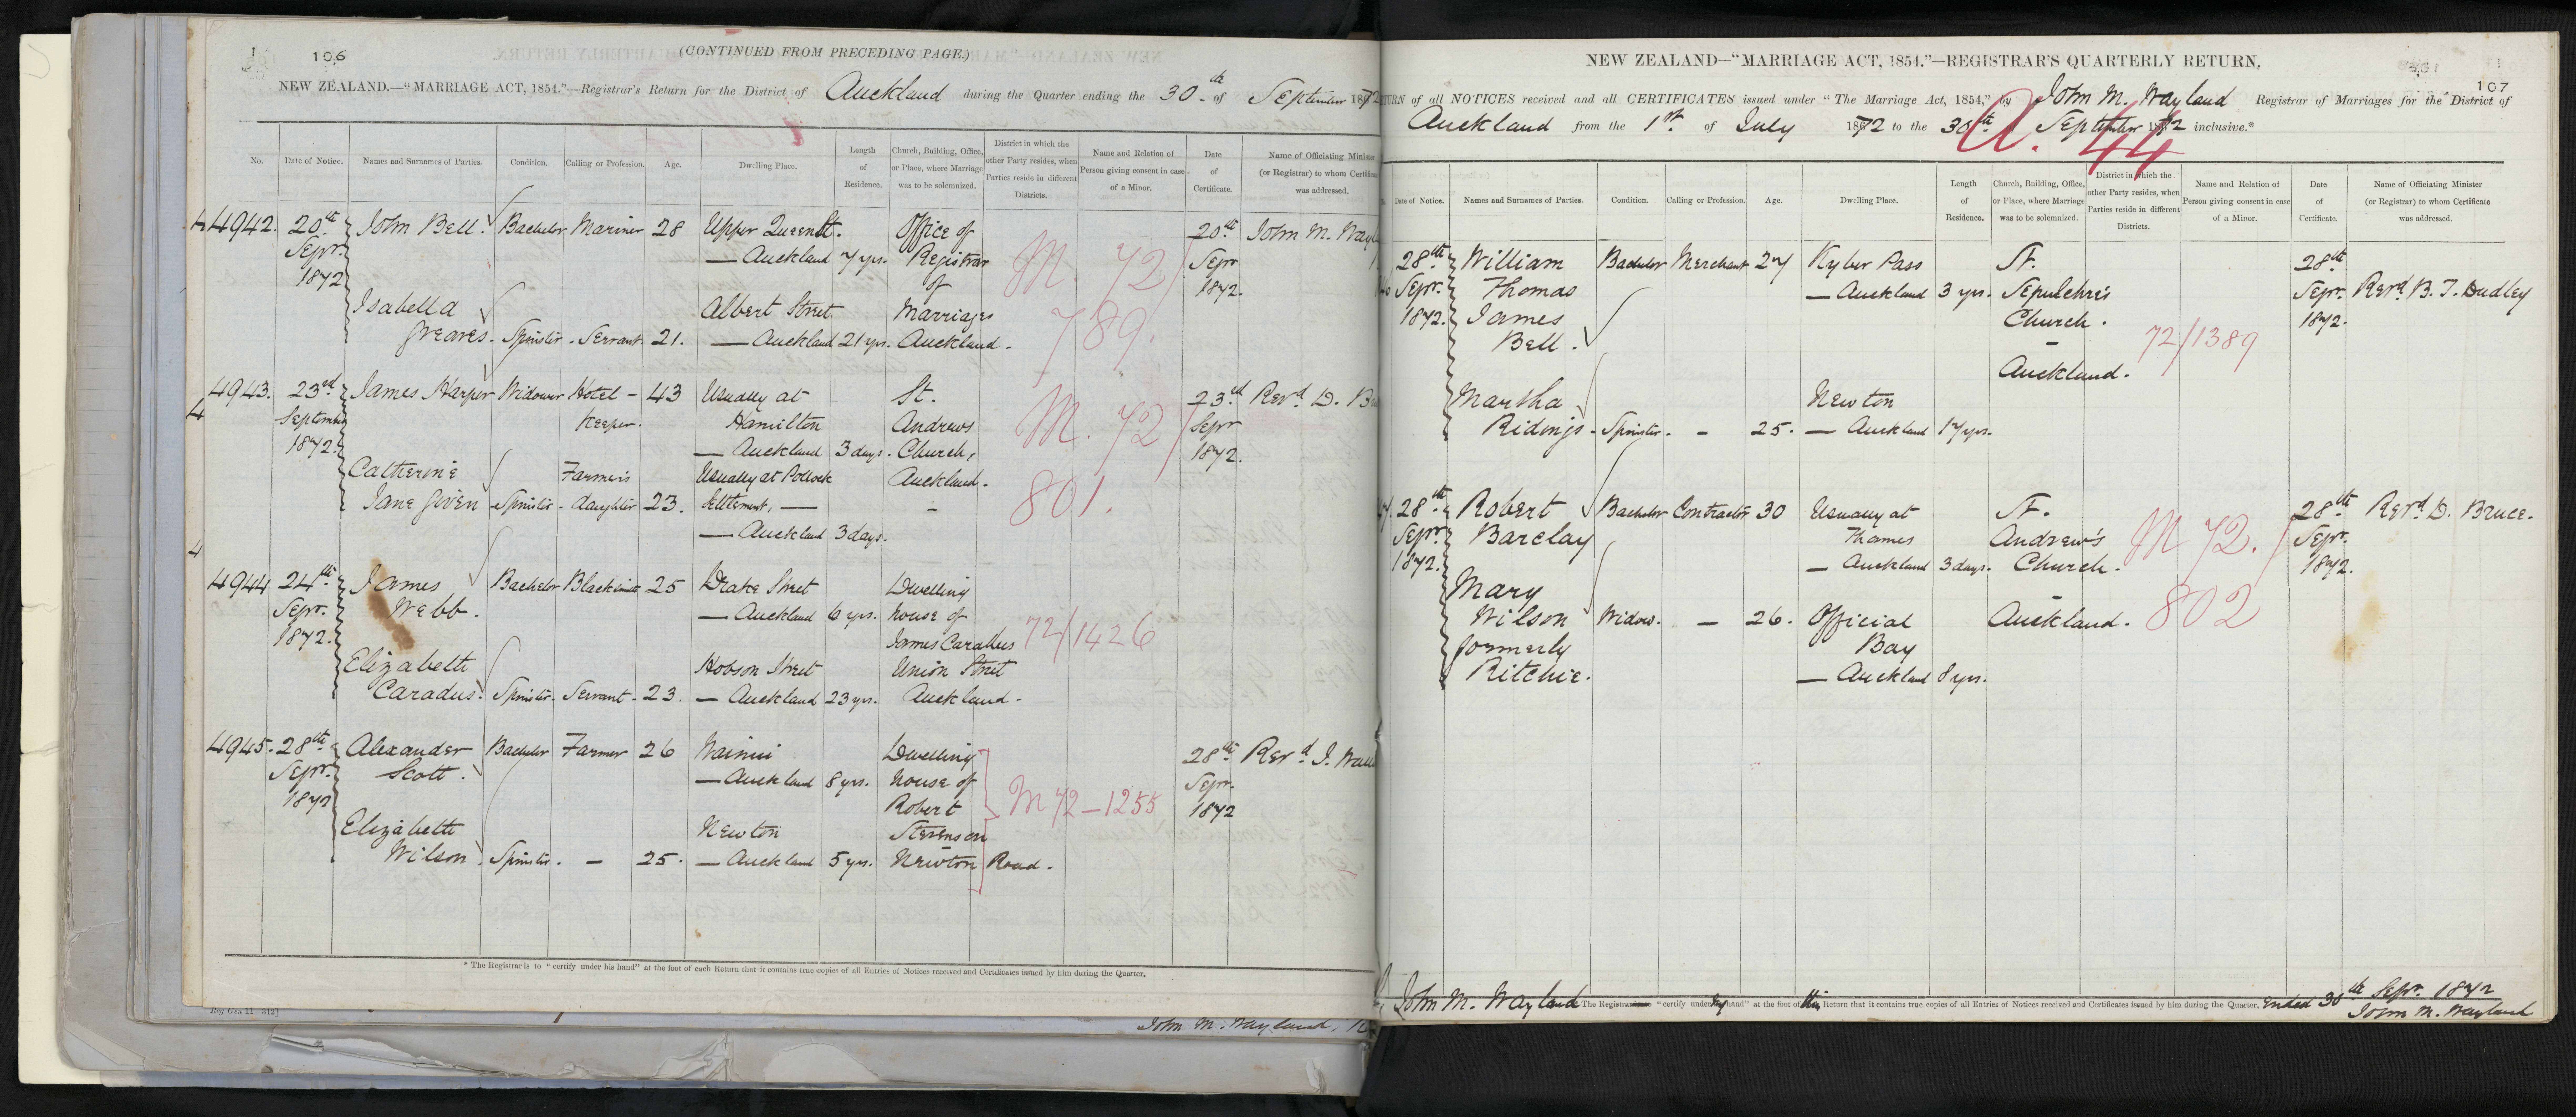 106
(CONTINUED FROM PRECEDING PAGE.)
NEW ZEALAND.—"MARRIAGE ACT, 1854."—Registrar's Return for the District of Auckland during the Quarter ending the 30th of September 1872
No. Date of Notice. Names and Surnames of Parties. Condition. Calling or Profession. Age. Dwelling Place. Length of Residence. Church, Building, Office, or Place, where Marriage was to be solemnized. District in which the other Party resides, when Parties reside in different Districts. Name and Relation of Person giving consent in case of a Minor. Date of Certificate. Name of Officiating Minister (or Registrar) to whom Certificate was addressed.
4 4942. 20th John Bell. Bachelor Mariner 28 Upper Queen St. Office of 20th John M. Wayl
Sepr. — Auckland 7 yrs. Registrar M. 72 Sepr
1872 of 1872.
Isabella Albert Street Marriages
Greaves. Spinster. Servant. 21. — Auckland 21 yrs. Auckland. 789.
4943. 23rd James Harper Widower Hotel — 43 Usually at St. 23rd Revd D. B
4 September Keeper. Hamilton Andrews M. 72 Sepr
1872. — Auckland 3 days. Church, 1872.
Catherine Farmer's Usually at Pollock Auckland.
Jane Given Spinster daughter 23. Settlement, — 801.
— Auckland 3 days.
4
4944 24th James Bachelor Blacksmith 25 Drake Street Dwelling
Sepr. Webb. — Auckland 6 yrs. house of
1872. James Caradus 72/1426
Elizabeth Hobson Street Union Street
Caradus. Spinster. Servant. 23. — Auckland 23 yrs. Auckland.
4945. 28th Alexander Bachelor Farmer 26 Wainui Dwelling 28th Revd J. Wall
Sepr. Scott. — Auckland 8 yrs. house of Sepr.
1872 Robert M 72—1255 1872
Elizabeth Newton Stevenson
Wilson. Spinster. — 25. — Auckland 5 yrs. Newton Road.
* The Registrar is to "certify under his hand" at the foot of each Return that it contains true copies of all Entries of Notices received and Certificates issued by him during the Quarter.
Reg Gen 11—312]
John M. Wayland,
107
NEW ZEALAND—"MARRIAGE ACT, 1854."—REGISTRAR'S QUARTERLY RETURN.
TURN of all NOTICES received and all CERTIFICATES issued under "The Marriage Act, 1854," by John M. Wayland Registrar of Marriages for the District of
Auckland from the 1st of July 1872 to the 30th September 1872 inclusive.*
A. 44
Date of Notice. Names and Surnames of Parties. Condition. Calling or Profession. Age. Dwelling Place. Length of Residence. Church, Building, Office, or Place, where Marriage was to be solemnized. District in which the other Party resides, when Parties reside in different Districts. Name and Relation of Person giving consent in case of a Minor. Date of Certificate. Name of Officiating Minister (or Registrar) to whom Certificate was addressed.
28th William Bachelor Merchant 27 Kyber Pass St. 28th
Sepr. Thomas — Auckland 3 yrs. Sepulchre's Sepr. Revd. B. T. Dudley
1872. James Church. 1872.
Bell. 72/1389
Auckland.
Martha Newton
Ridings. Spinster. — 25. — Auckland 17 yrs.
28th Robert Bachelor Contractor 30 Usually at St. 28th Revd D. Bruce.
Sepr. Barclay Thames Andrew's M 72. Sepr.
1872. — Auckland 3 days. Church. 1872.
Mary
Wilson Widow. — 26. Official Auckland. 802
formerly Bay
Ritchie. — Auckland 8 yrs.
John M. Wayland The Registrar is to "certify under my hand" at the foot of this Return that it contains true copies of all Entries of Notices received and Certificates issued by him during the Quarter. Ended 30th Sepr. 1872
John M. Wayland